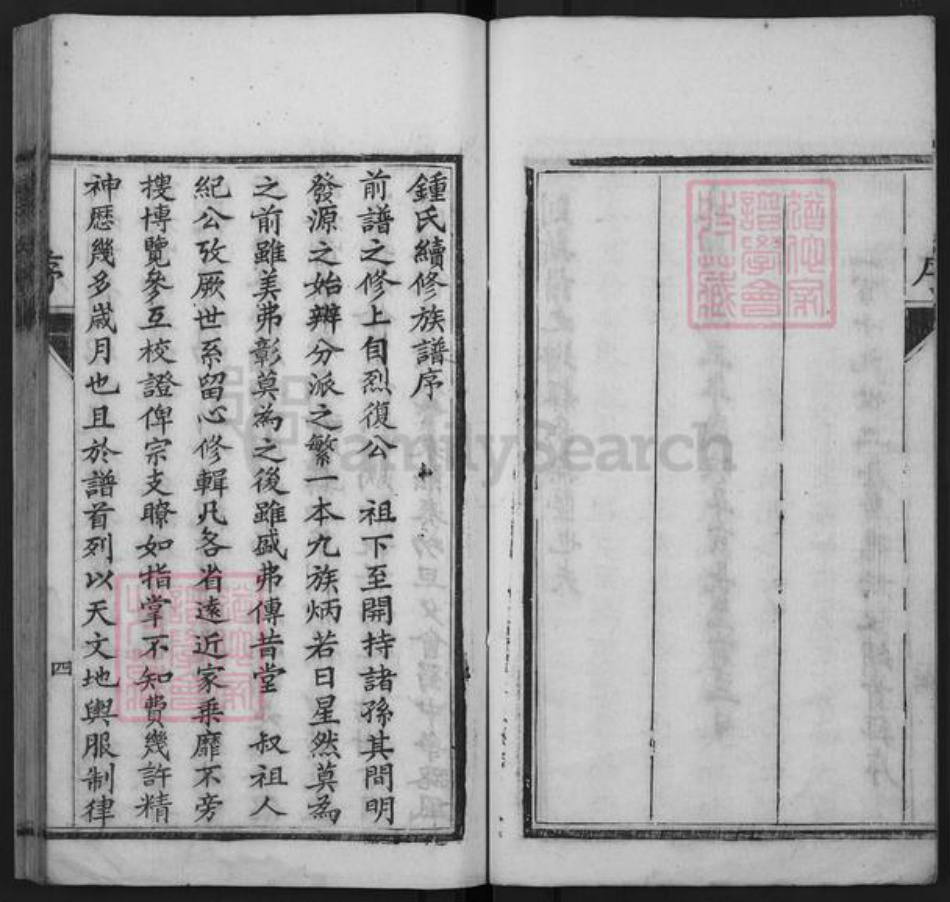 序
鍾氏續修族譜序
前譜之修上自烈復公 祖下至開持諸孫其間明
發源之始辨分派之繁一本九族炳若日星然莫為
之前雖美弗彰莫為之後雖盛弗傳昔堂 叔祖人
紀公攷厥世系留心修輯凡各省遠近家乗靡不旁
搜博覽參互校證俾宗支瞭如指掌不知費幾許精
神歷幾多歲月也且於譜首列以天文地輿服制律
序
四
FamilySearch